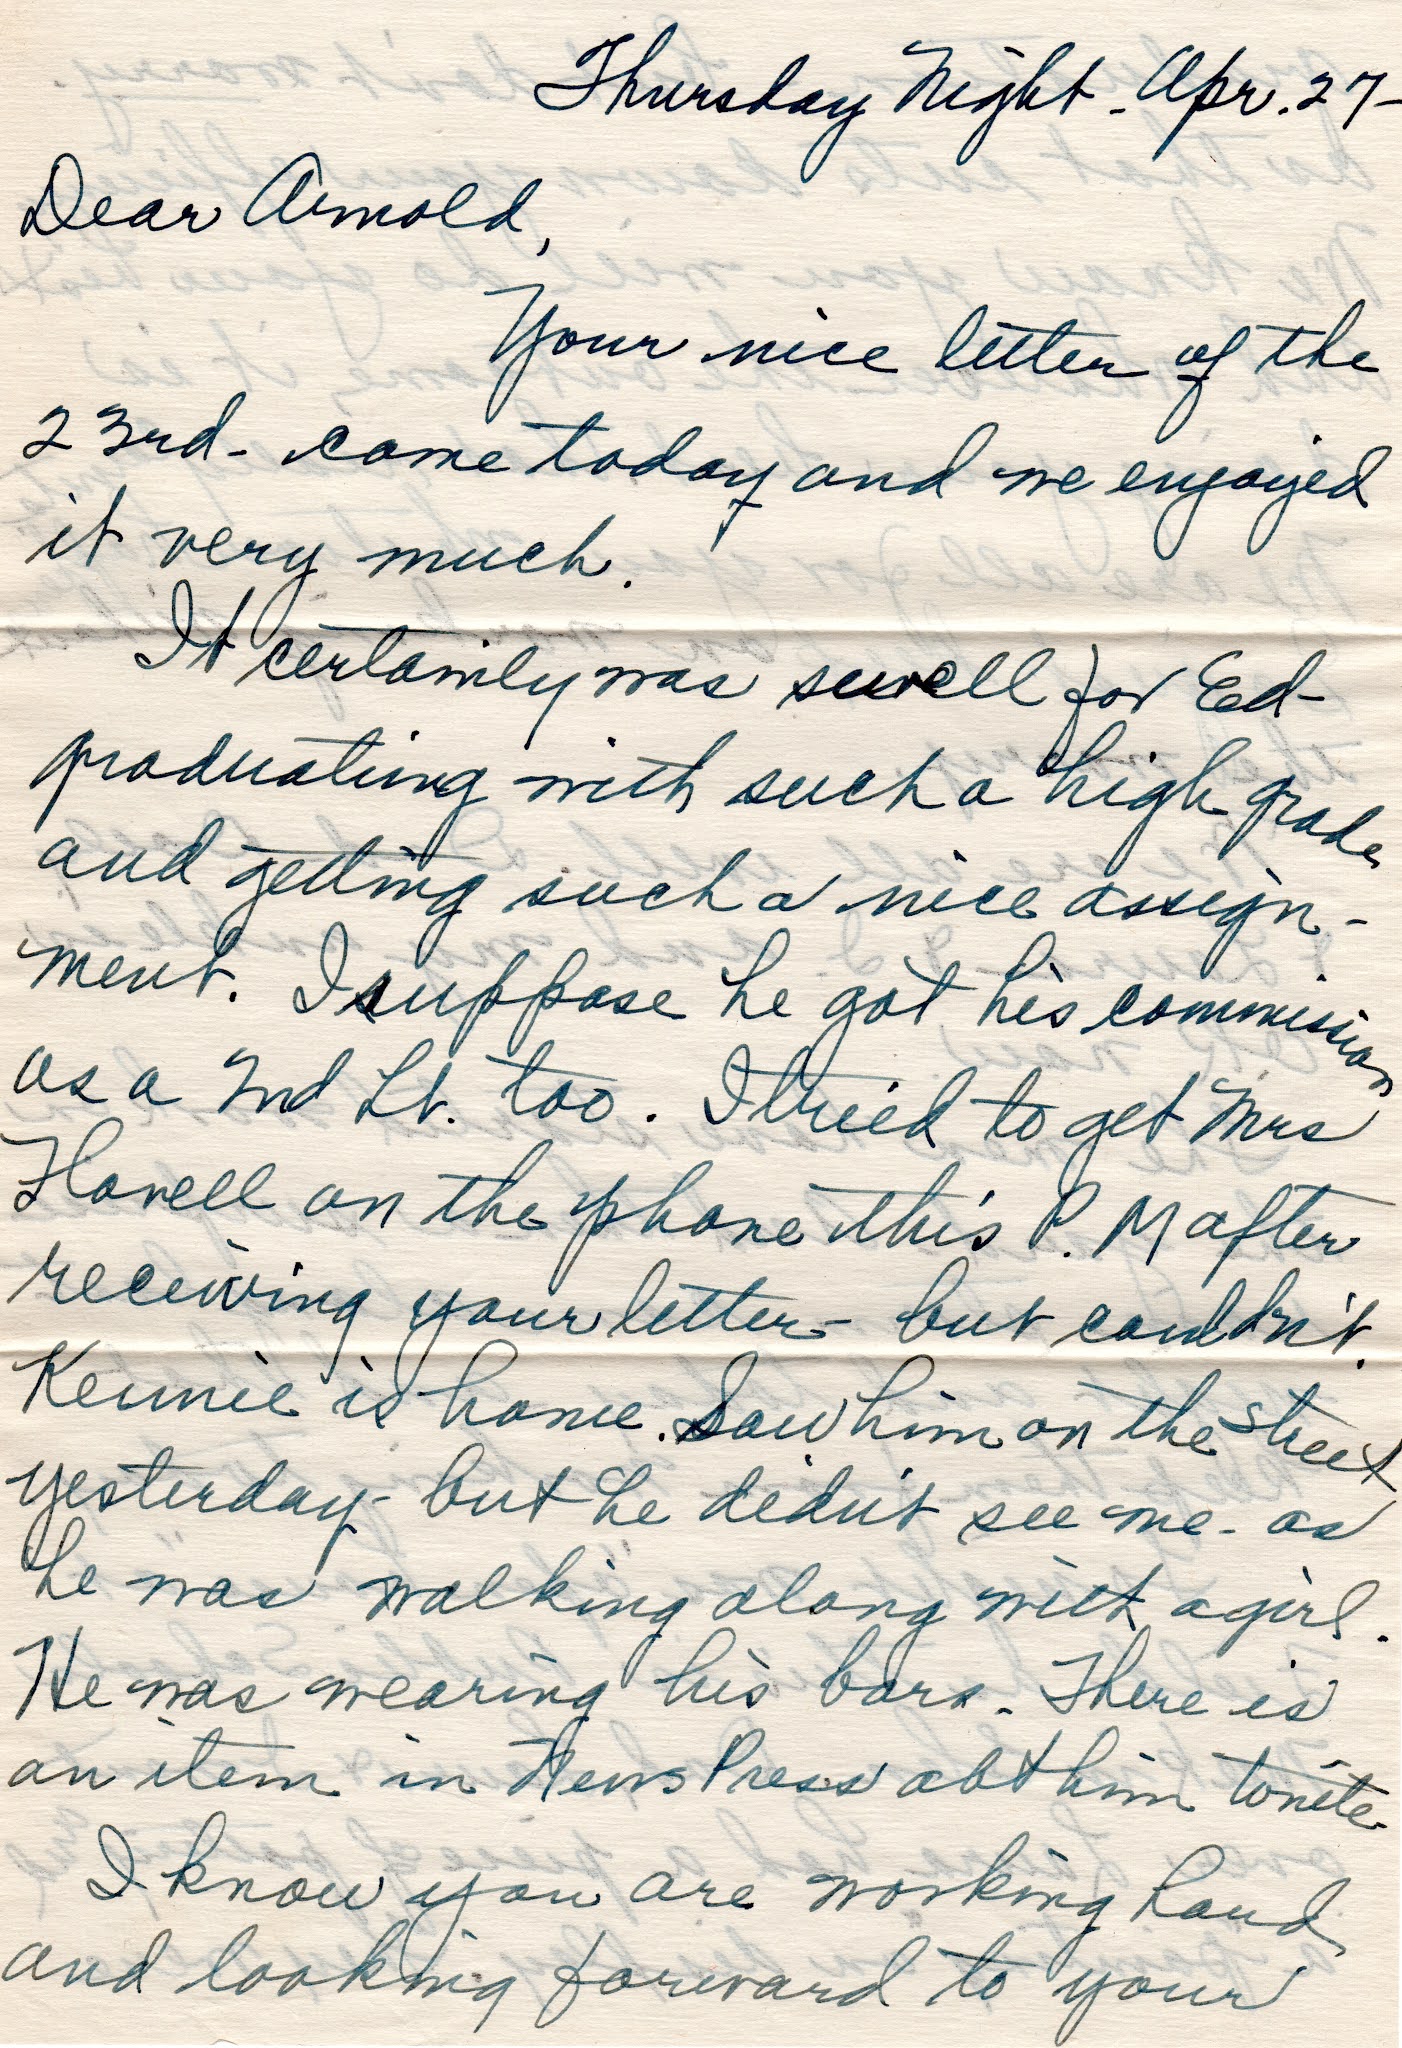 Thursday Night - Apr. 27-
Dear Arnold,
Your nice letter of the
23rd - came today and we enjoyed
it very much.
It certainly was swell for Ed-
graduating with such a high grade
and getting such a nice assign-
ment. I suppose he got his commission
as a 2nd Lt. too. I tried to get Mrs
Howell on the phone this P. M after
receiving your letter - but couldn't.
Kennie is home. Saw him on the street
yesterday - but he didn't see me - as
he was walking along with a girl.
He was wearing his bars. There is
an item in News Press abt him tonite
I know you are working hard
and looking forward to your